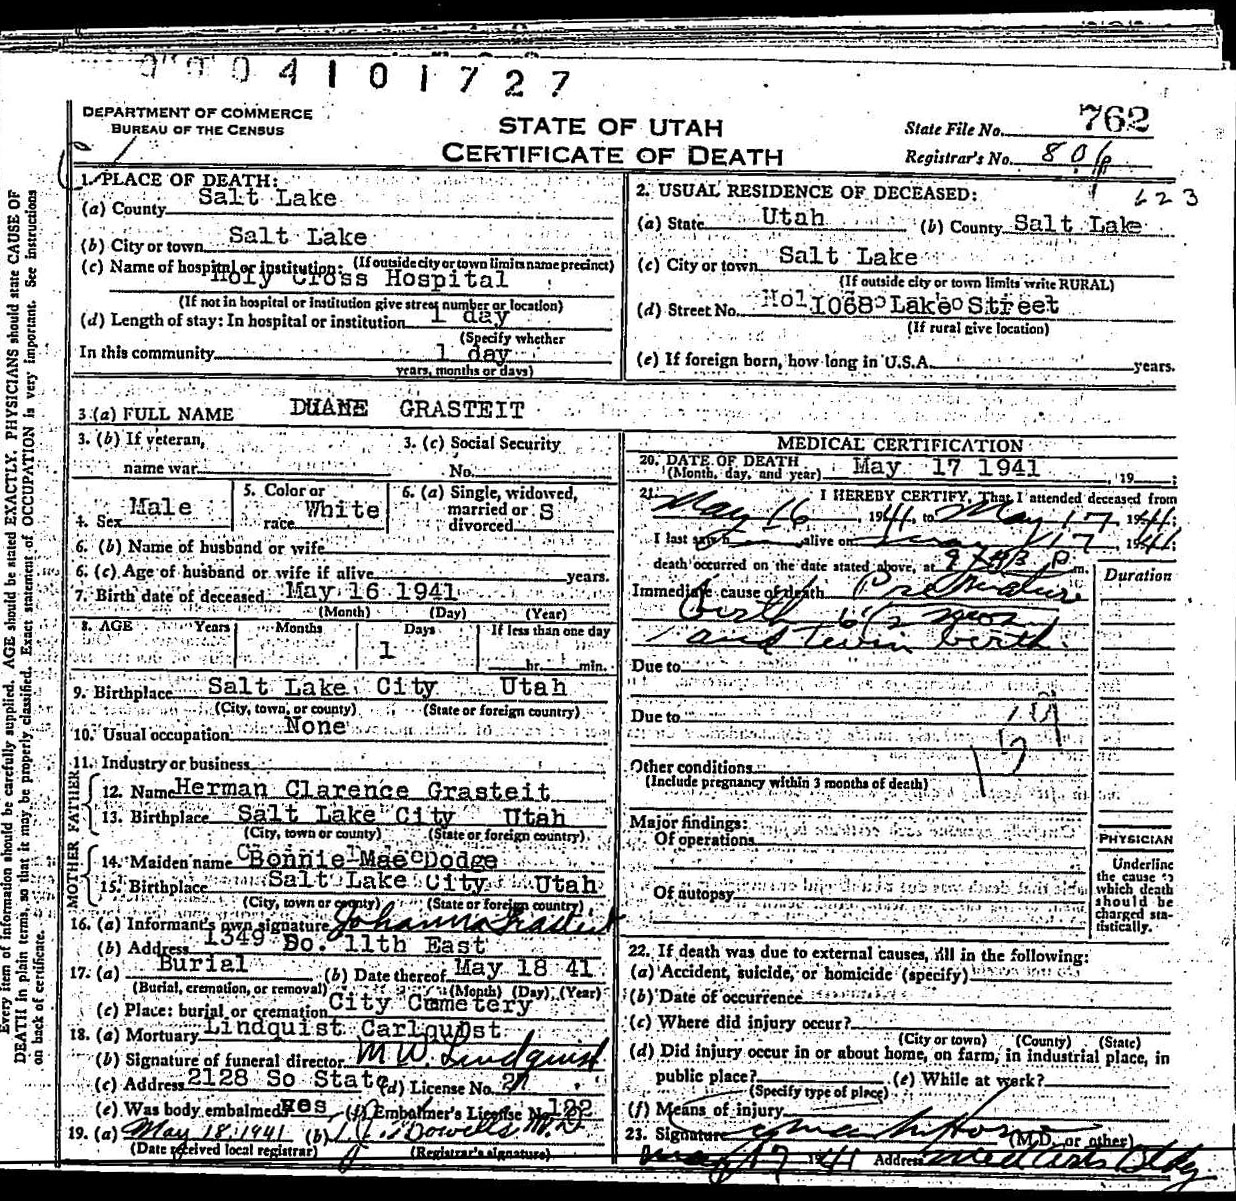 0004101727
DEPARTMENT OF COMMERCE
BUREAU OF THE CENSUS
STATE OF UTAH
CERTIFICATE OF DEATH
State File No. 762
Registrar's No. 806
623
1. PLACE OF DEATH:
(a) County Salt Lake
(b) City or town Salt Lake
(If outside city or town limits name precinct)
(c) Name of hospital or institution: Holy Cross Hospital
(If not in hospital or institution give street number or location)
(d) Length of stay: In hospital or institution 1 day
(Specify whether
In this community 1 day
years, months or days)
2. USUAL RESIDENCE OF DECEASED:
(a) State Utah (b) County Salt Lake
(c) City or town Salt Lake
(If outside city or town limits write RURAL)
(d) Street No. 1068 Lake Street
(If rural give location)
(e) If foreign born, how long in U.S.A. years.
3 (a) FULL NAME DUANE GRASTEIT
3. (b) If veteran,
name war
3. (c) Social Security
No.
4. Sex Male
5. Color or
race White
6. (a) Single, widowed,
married or S
divorced
6. (b) Name of husband or wife
6. (c) Age of husband or wife if alive years.
7. Birth date of deceased May 16 1941
(Month) (Day) (Year)
8. AGE Years Months Days If less than one day
1
hr. min.
9. Birthplace Salt Lake City Utah
(City, town, or county) (State or foreign country)
10. Usual occupation None
11. Industry or business
FATHER
12. Name Herman Clarence Grasteit
13. Birthplace Salt Lake City Utah
(City, town or county) (State or foreign country)
MOTHER
14. Maiden name Bonnie Mae Dodge
15. Birthplace Salt Lake City Utah
(City, town or county) (State or foreign country)
16. (a) Informant's own signature Johanna Grasteit
(b) Address 1349 So. 11th East
17. (a) Burial (b) Date thereof May 18 41
(Burial, cremation, or removal) (Month) (Day) (Year)
(c) Place: burial or cremation City Cemetery
18. (a) Mortuary Lindquist Carlquist
(b) Signature of funeral director M W. Lindquist
(c) Address 2128 So State (d) License No.
(e) Was body embalmed? yes (f) Embalmer's License No. 122
19. (a) May 18 1941 (b) M.D.
(Date received local registrar) (Registrar's signature)
MEDICAL CERTIFICATION
20. DATE OF DEATH
(Month, day, and year) May 17 1941, 19 ;
21. I HEREBY CERTIFY, That I attended deceased from
May 16, 1941, to May 17 1941;
I last saw h alive on May 17 1941;
death occurred on the date stated above, at P m.
Duration
Immediate cause of death Premature
birth 6 1/2 mon
and twin birth.
Due to
Due to
159
Other conditions
(Include pregnancy within 3 months of death)
Major findings:
Of operations
Of autopsy
PHYSICIAN
Underline
the cause to
which death
should be
charged sta-
tistically.
22. If death was due to external causes, fill in the following:
(a) Accident, suicide, or homicide (specify)
(b) Date of occurrence
(c) Where did injury occur?
(City or town) (County) (State)
(d) Did injury occur in or about home, on farm, in industrial place, in
public place? (e) While at work?
(Specify type of place)
(f) Means of injury
23. Signature (M.D. or other)
May 17 1941 Address Bldg
Every item of information should be carefully supplied. AGE should be stated EXACTLY. PHYSICIANS should state CAUSE OF
DEATH in plain terms, so that it may be properly classified. Exact statement of OCCUPATION is very important. See instructions
on back of certificate.